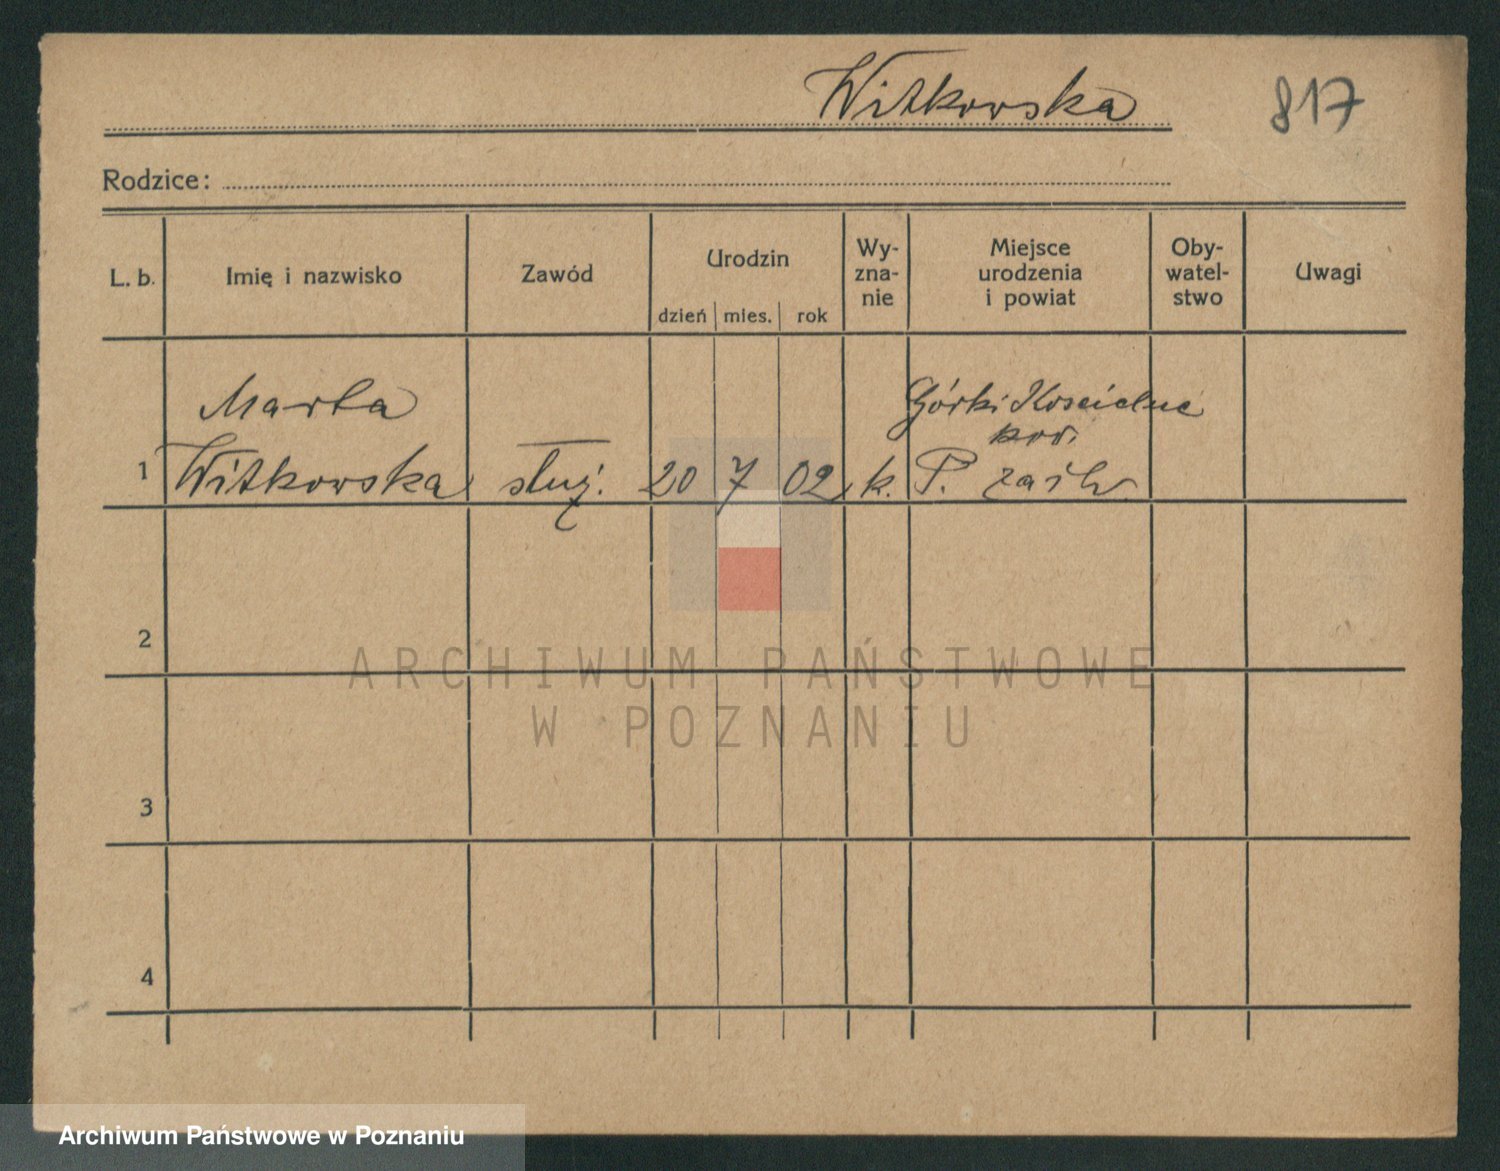 Witkowska
817
Rodzice:
L. b.
Imię i nazwisko
Zawód
Urodzin
dzień mies. rok
Wy-
zna-
nie
Miejsce
urodzenia
i powiat
Oby-
watel-
stwo
Uwagi
Marta
Górki Kościelne
1 Witkowska służ. 20 7 02 k. P.
2
3
4
ARCHIWUM PAŃSTWOWE
W POZNANIU
Archiwum Państwowe w Poznaniu